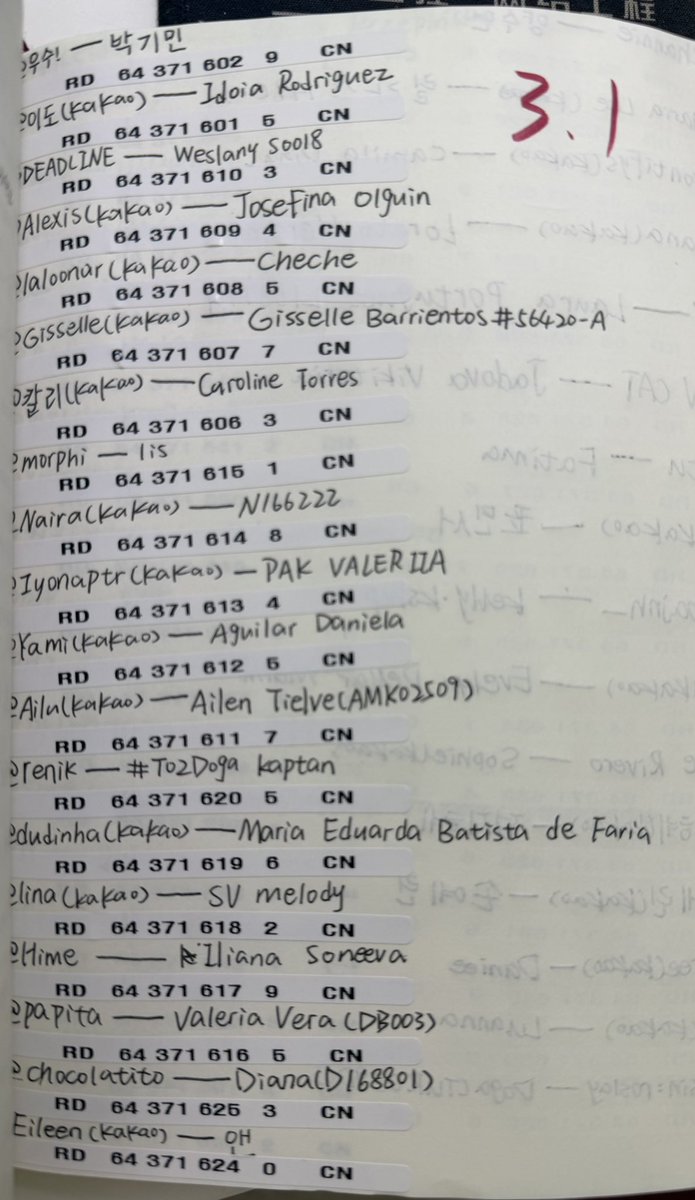 3.1
@우수! — 박기민
RD 64 371 602 9 CN
@이도(kakao) — Idoia Rodriguez
RD 64 371 601 5 CN
@DEADLINE — Weslany S0018
RD 64 371 610 3 CN
@Alexis(kakao) — Josefina Olguin
RD 64 371 609 4 CN
@laloonar(kakao) — Cheche
RD 64 371 608 5 CN
@Gisselle(kakao) — Gisselle Barrientos #56420-A
RD 64 371 607 7 CN
@칼리(kakao) — Caroline Torres
RD 64 371 606 3 CN
@morphi — lis
RD 64 371 615 1 CN
@Naira(kakao) — N166222
RD 64 371 614 8 CN
@Iyonaptr(kakao) — PAK VALERIIA
RD 64 371 613 4 CN
@Yami(kakao) — Aguilar Daniela
RD 64 371 612 5 CN
@Ailu(kakao) — Ailen Tielve(AMK02509)
RD 64 371 611 7 CN
@renik — #T02Doga kaptan
RD 64 371 620 5 CN
@dudinha(kakao) — Maria Eduarda Batista de Faria
RD 64 371 619 6 CN
@lina(kakao) — SV melody
RD 64 371 618 2 CN
@Hime — Iliana Soneeva
RD 64 371 617 9 CN
@papita — Valeria Vera (DB003)
RD 64 371 616 5 CN
@chocolatito — Diana(D168801)
RD 64 371 625 3 CN
Eileen(kakao) — 얀
RD 64 371 624 0 CN